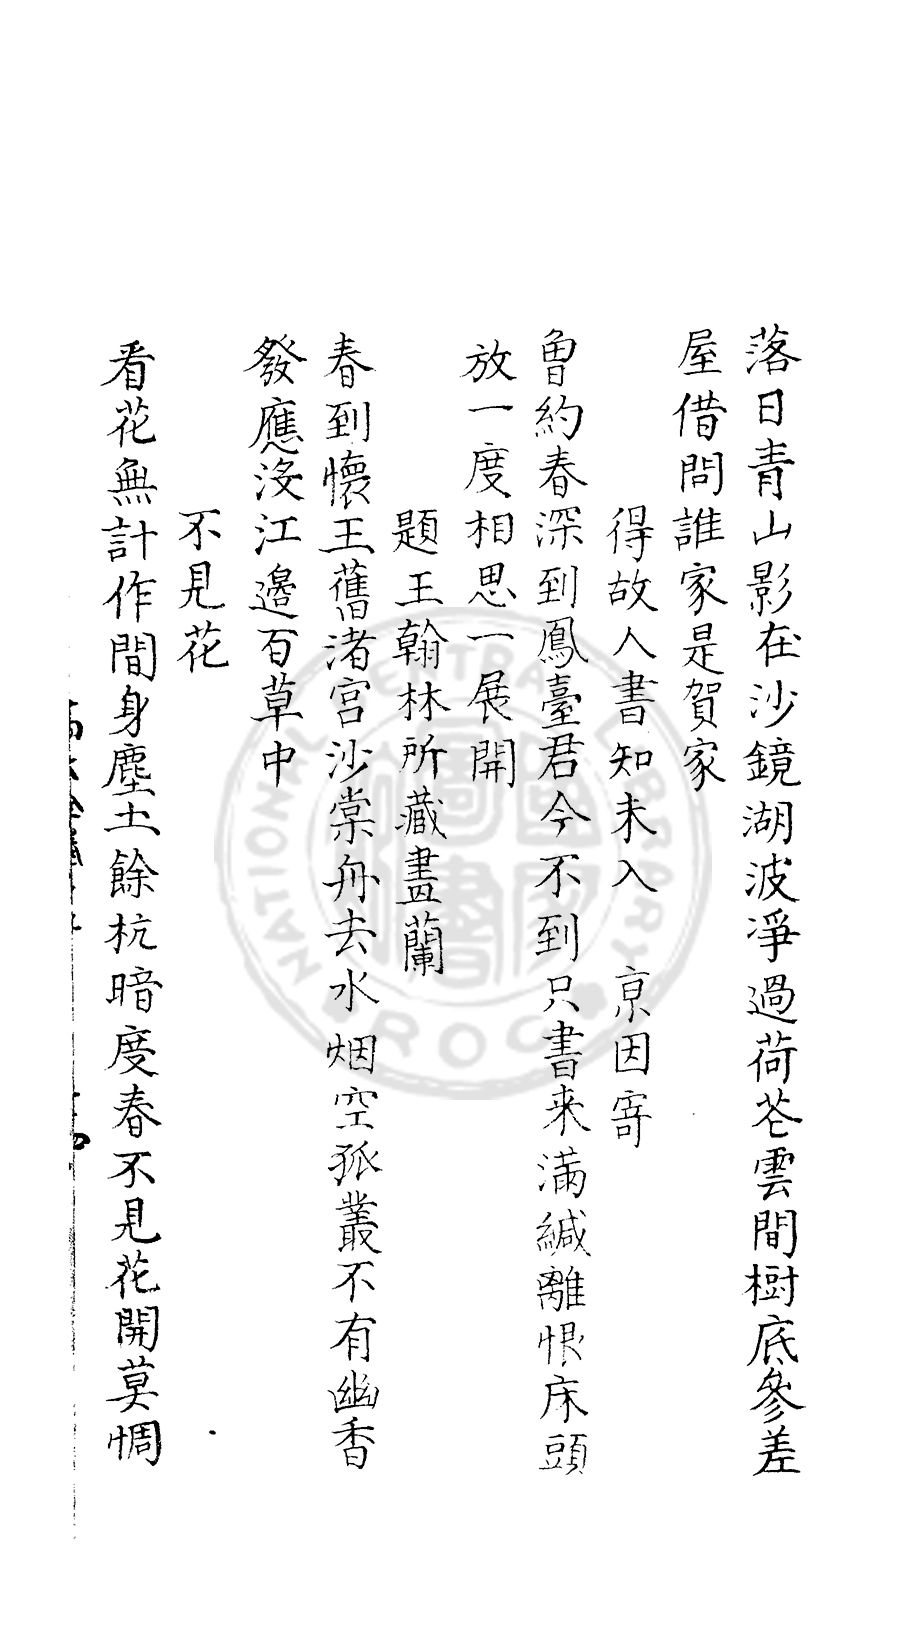 落日青山影在沙鏡湖波凈過荷花雲間樹底參差
屋借問誰家是賀家
得故人書知未入　京因寄
曾約春深到鳳臺君今不到只書来滿緘離恨床頭
放一度相思一展開
題王翰林所藏畫蘭
春到懷王舊渚宮沙棠舟去水烟空孤叢不有幽香
發應没江邊百草中
不見花
看花無計作閒身塵土餘杭暗度春不見花開莫惆
NATIONAL CENTRAL LIBRARY
ROC